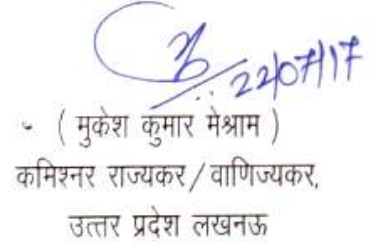 22/07/17
( मुकेश कुमार मेश्राम )
कमिश्नर राज्यकर/वाणिज्यकर,
उत्तर प्रदेश लखनऊ